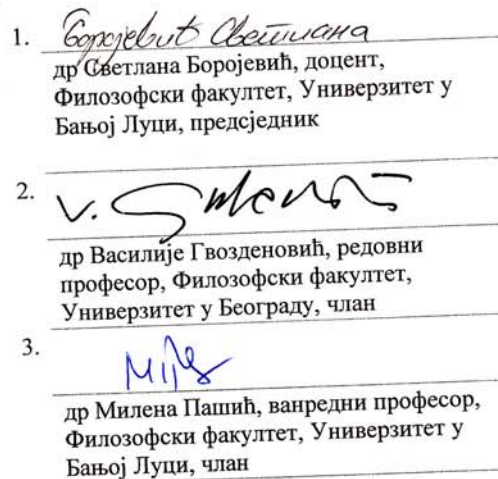 1. Боројевић Светлана
др Светлана Боројевић, доцент,
Филозофски факултет, Универзитет у
Бањој Луци, предсједник
2.
др Василије Гвозденовић, редовни
професор, Филозофски факултет,
Универзитет у Београду, члан
3.
др Милена Пашић, ванредни професор,
Филозофски факултет, Универзитет у
Бањој Луци, члан